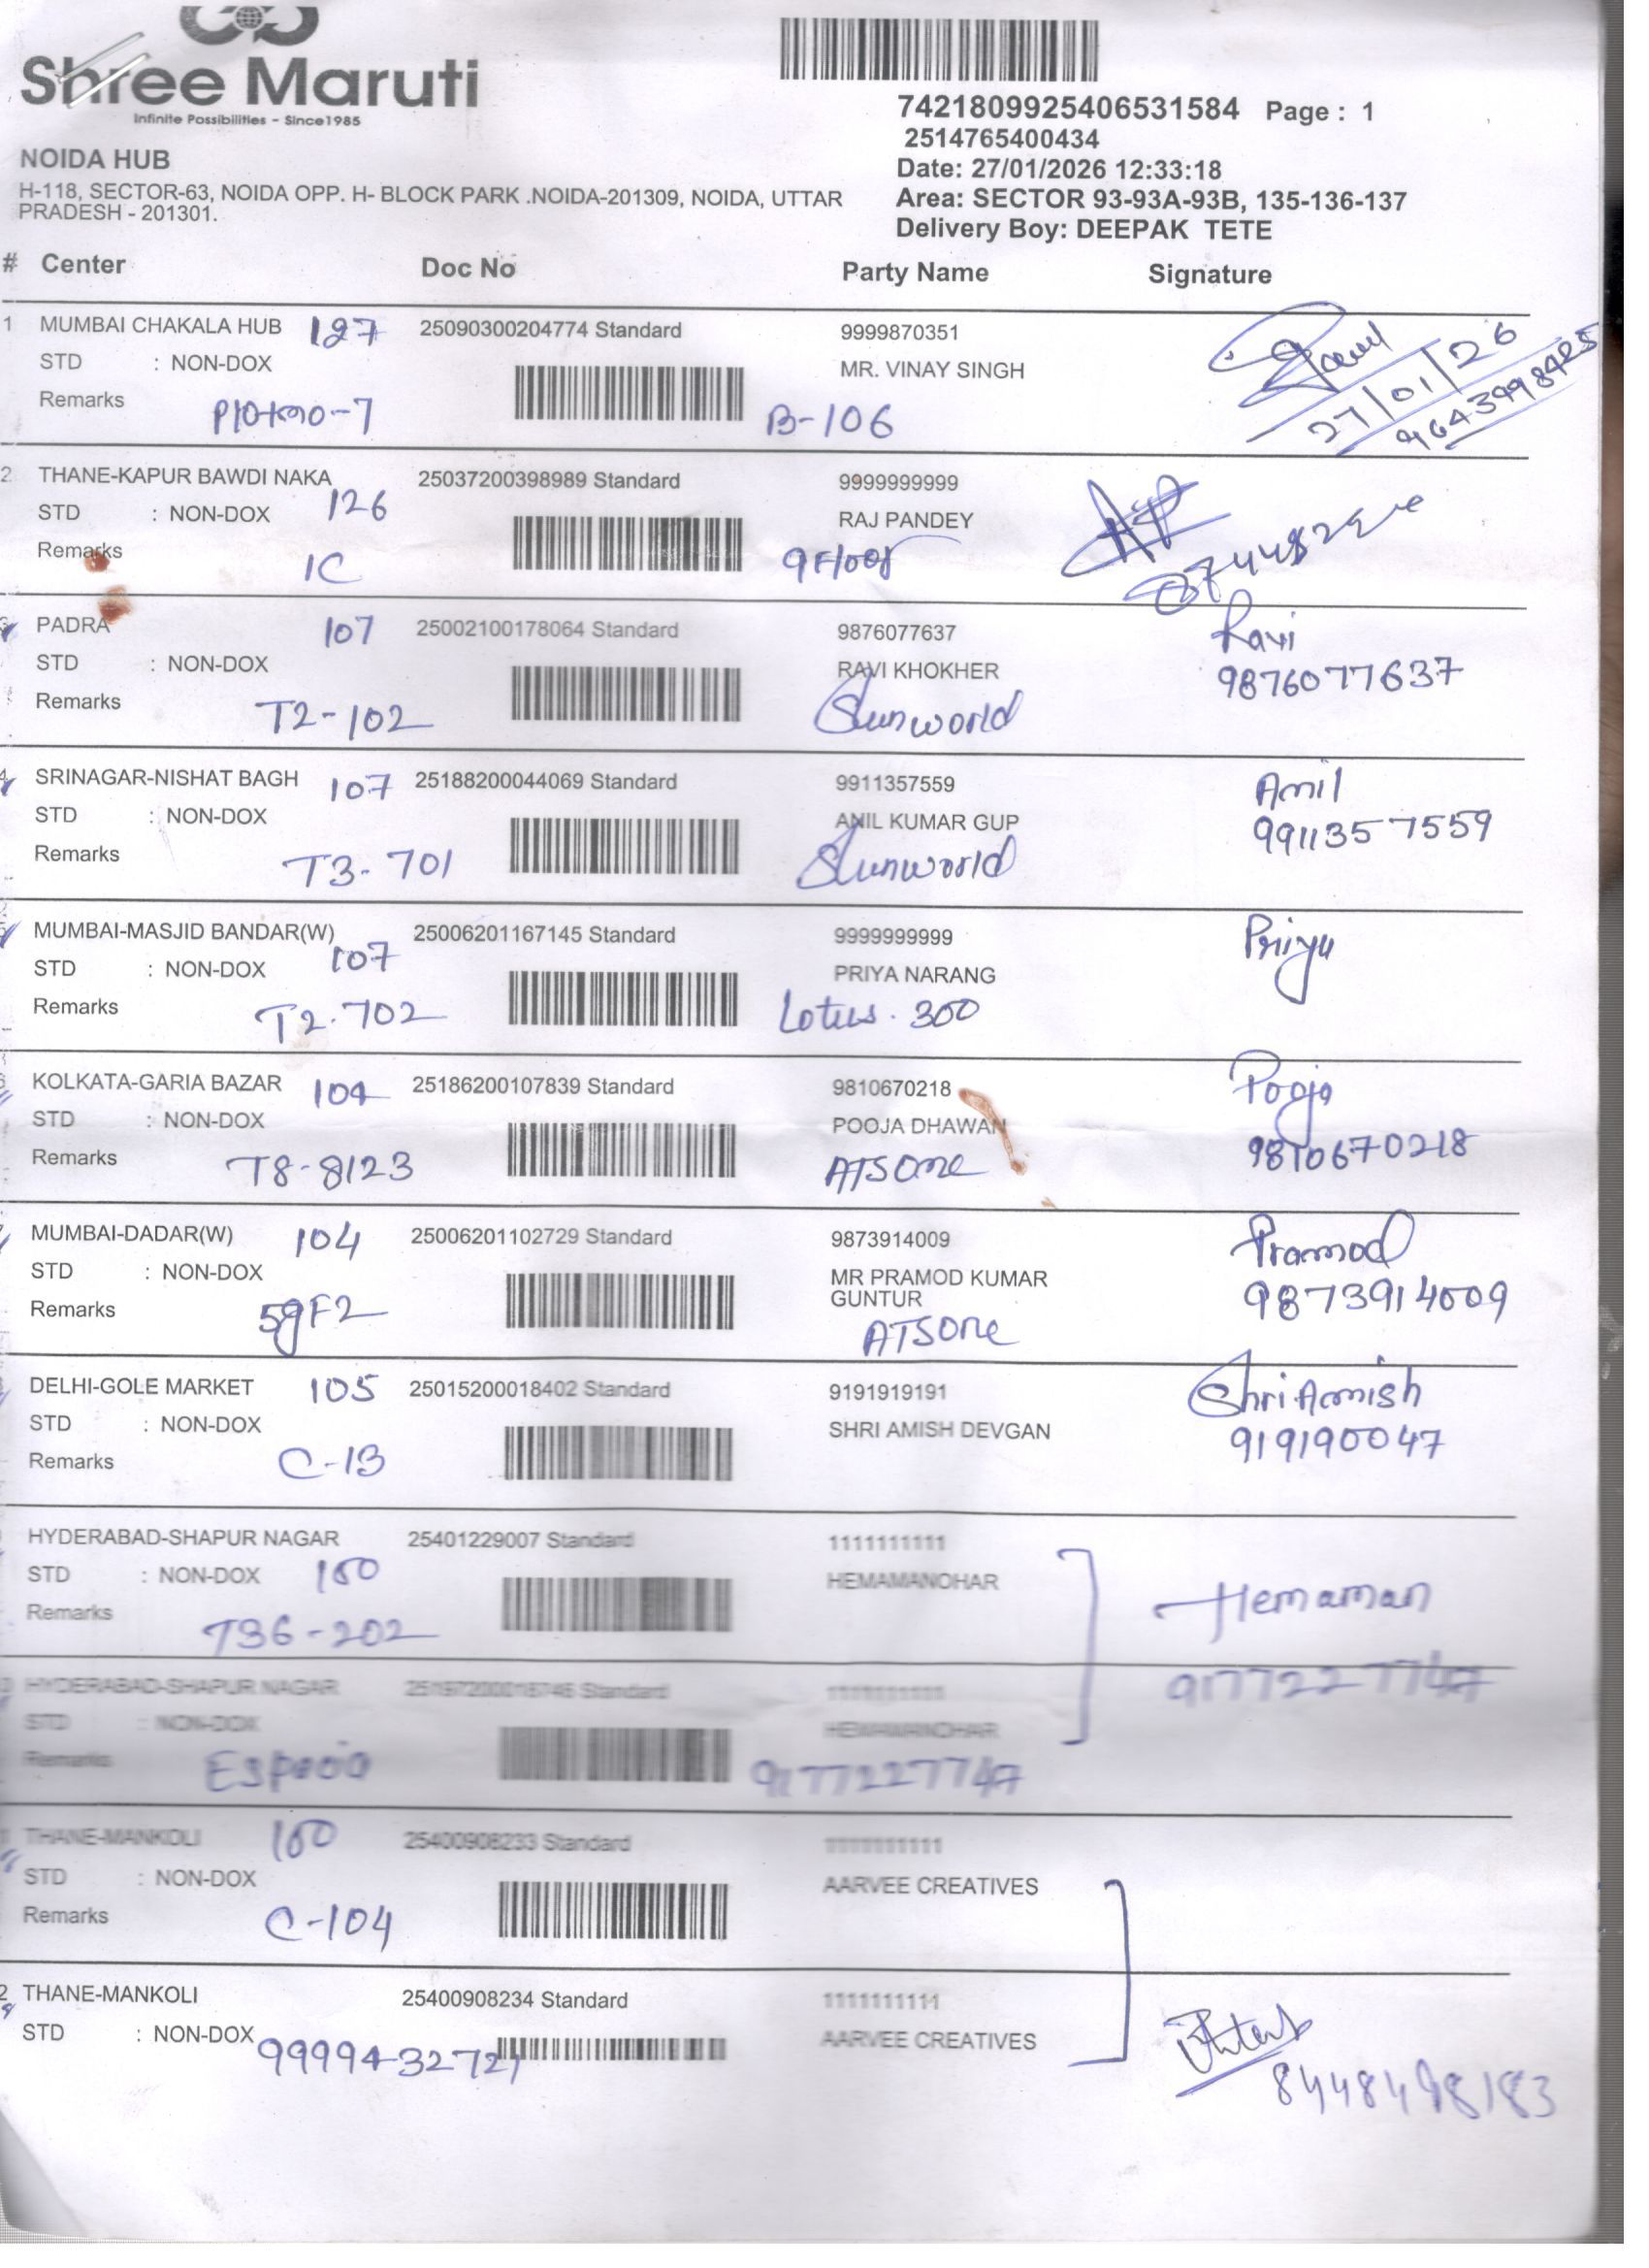 Shree Maruti
Infinite Possibilities - Since1985
7421809925406531584 Page : 1
2514765400434
NOIDA HUB
Date: 27/01/2026 12:33:18
H-118, SECTOR-63, NOIDA OPP. H- BLOCK PARK .NOIDA-201309, NOIDA, UTTAR
PRADESH - 201301.
Area: SECTOR 93-93A-93B, 135-136-137
Delivery Boy: DEEPAK TETE
# Center Doc No Party Name Signature
1 MUMBAI CHAKALA HUB 127 25090300204774 Standard 9999870351
STD : NON-DOX MR. VINAY SINGH
27/01/26
Remarks Plotno-7 B-106 9643998425
2 THANE-KAPUR BAWDI NAKA 25037200398989 Standard 9999999999
STD : NON-DOX 126 RAJ PANDEY
Remarks 1C 9Floor
PADRA 107 25002100178064 Standard 9876077637 Ravi
STD : NON-DOX RAVI KHOKHER 9876077637
Remarks T2-102 Sunworld
SRINAGAR-NISHAT BAGH 107 25188200044069 Standard 9911357559 Anil
STD : NON-DOX ANIL KUMAR GUP 9911357559
Remarks T3-701 Sunworld
MUMBAI-MASJID BANDAR(W) 25006201167145 Standard 9999999999 Priya
STD : NON-DOX 107 PRIYA NARANG
Remarks T2-702 Lotus. 300
KOLKATA-GARIA BAZAR 104 25186200107839 Standard 9810670218 Pooja
STD : NON-DOX POOJA DHAWAN
Remarks T8-8123 ATSOne 9810670218
MUMBAI-DADAR(W) 104 25006201102729 Standard 9873914009 Pramod
STD : NON-DOX MR PRAMOD KUMAR
GUNTUR 9873914009
Remarks ATSOne
DELHI-GOLE MARKET 105 25015200018402 Standard 9191919191 Shri Amish
STD : NON-DOX SHRI AMISH DEVGAN 919190047
Remarks C-13
HYDERABAD-SHAPUR NAGAR 25401229007 Standard 1111111111
STD : NON-DOX 100 HEMAMANOHAR Hemaman
Remarks T36-202
HYDERABAD-SHAPUR NAGAR Standard 1111111111 9177227747
STD : NON-DOX HEMAMANOHAR
Remarks 9177227747
THANE-MANKOLI 100 25400908233 Standard 1111111111
STD : NON-DOX AARVEE CREATIVES
Remarks C-104
2 THANE-MANKOLI 25400908234 Standard 1111111111
STD : NON-DOX 9999432721 AARVEE CREATIVES
8448498183